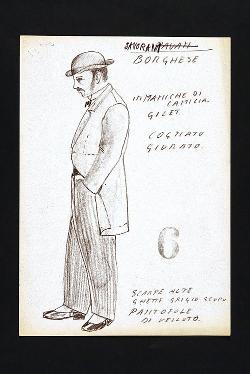 BORGHESE
IN MANICHE DI
CAMICIA
GILET.
COGNATO
GIURATO.
6
SCARPE ALTE
GHETTE GRIGIO SCURO.
PANTOFOLE
DI VELLUTO.